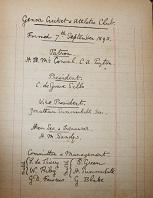 Genoa Cricket & Athletic Club.
Formed 7th September 1893.
Patron
H.B.M's Consul. C. A. Payton
President.
C. de Grave Sells
Vice President.
Jonathan Summerhill Sen.
Hon Sec & Treasurer
H. M. Sandys.
Committee of Management
F. de Thierry
B. Green
W. Riley
H. Summerhill
G. D. Fawcus
G. Blake